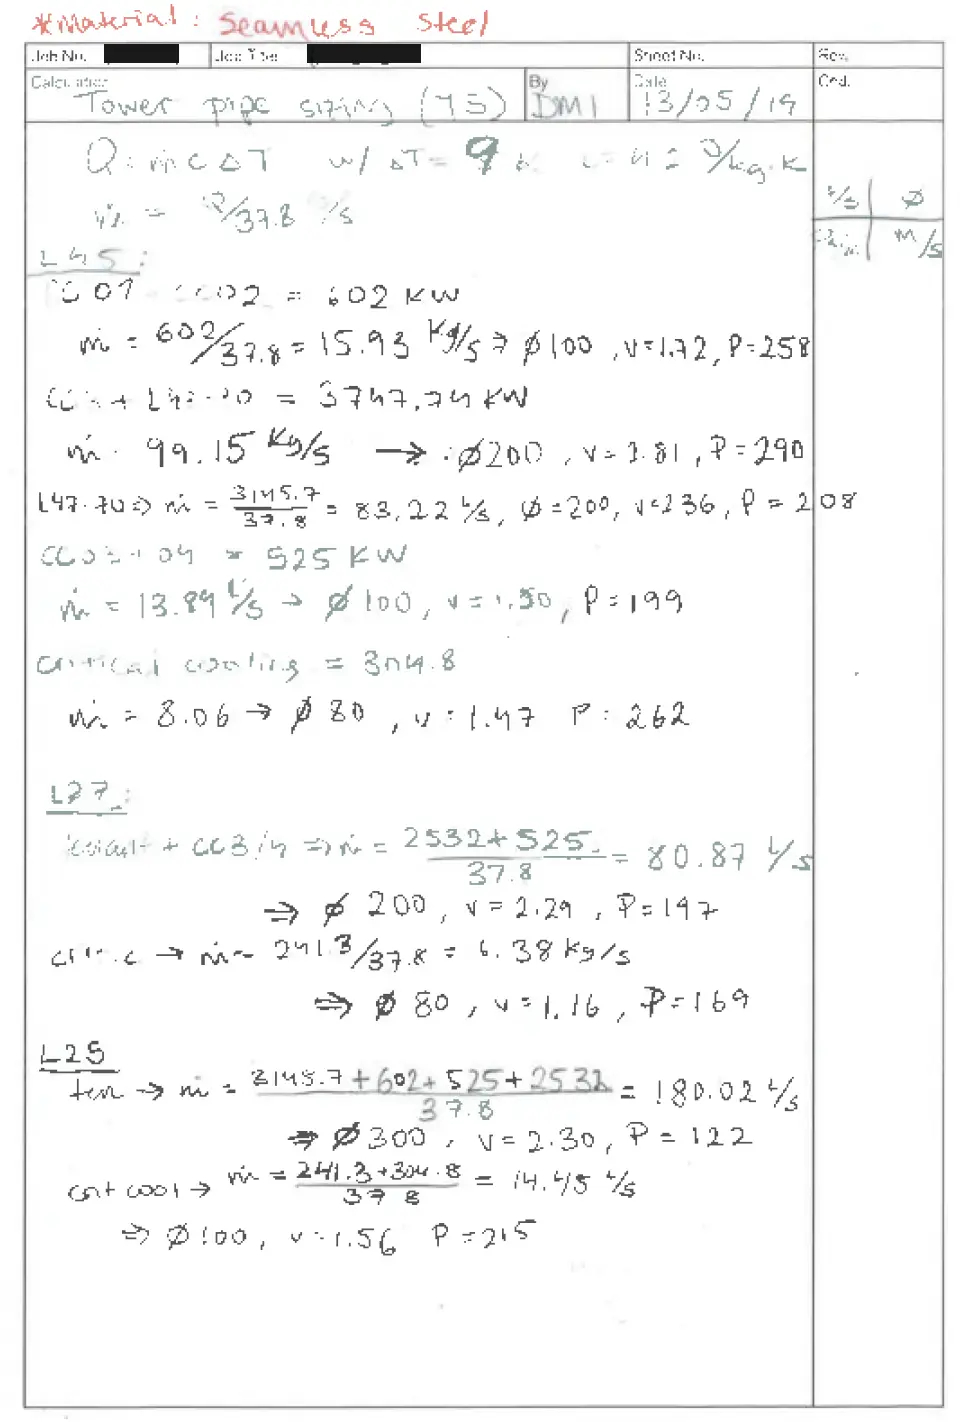 *Material: Seamless Steel
Job No. Job Title Sheet No. Rev.
Calculation By Date Chd.
Tower pipe sizing (45) DMI 13/05/19
Q = ṁ c ΔT w/ ΔT = 9 K c = 4.2 J/kg.K
ṁ = Q/37.8 L/s
L/s Ø
Pa/m M/s
L45:
CC01 CC02 = 602 KW
ṁ = 602/37.8 = 15.93 Kg/s → Ø100, v=1.72, P=258
= 3747.74 KW
ṁ = 99.15 Kg/s → Ø200, v=2.81, P=290
L47-70 => ṁ = 3145.7/37.8 = 83.22 L/s, Ø=200, v=236, P=208
CC03+04 = 525 KW
ṁ = 13.89 L/s → Ø100, v=1.50, P=199
critical cooling = 304.8
ṁ = 8.06 → Ø80, v=1.47 P=262
L27:
+ CC3/4 => ṁ = 2532+525/37.8 = 80.87 L/s
=> Ø 200, v=2.29, P=197
crit.c → ṁ = 241.3/37.8 = 6.38 kg/s
=> Ø 80, v=1.16, P=169
L25
ten → ṁ = 3145.7+602+525+2532/37.8 = 180.02 L/s
=> Ø300, v=2.30, P=122
crit cool → ṁ = 241.3+304.8/37.8 = 14.45 L/s
=> Ø100, v=1.56 P=215